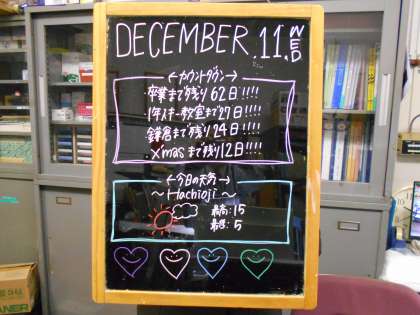 DECEMBER.11.WED
←カウントダウン→
卒業まで残り62日!!!!
1年スキー教室まで27日!!!!
鎌倉まで残り24日!!!!
X'masまで残り12日!!!!
←今日の天気→
〜Hachioji〜
最高:15
最低:5